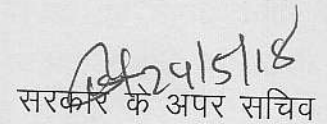 29/5/18
सरकार के अपर सचिव